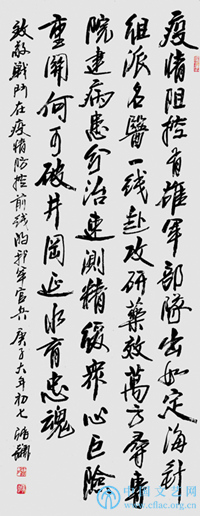 疫情阻控有雄军部隊出如定海针
组派名醫一线赴攻研藥效萬方尋專
院建病患分治速測精缓眾心巨險
重關何可破井岡延水育忠魂
致敬戰鬥在疫情防控前线的我军官兵 庚子大年初七
中国文艺网
www.cflac.org.cn